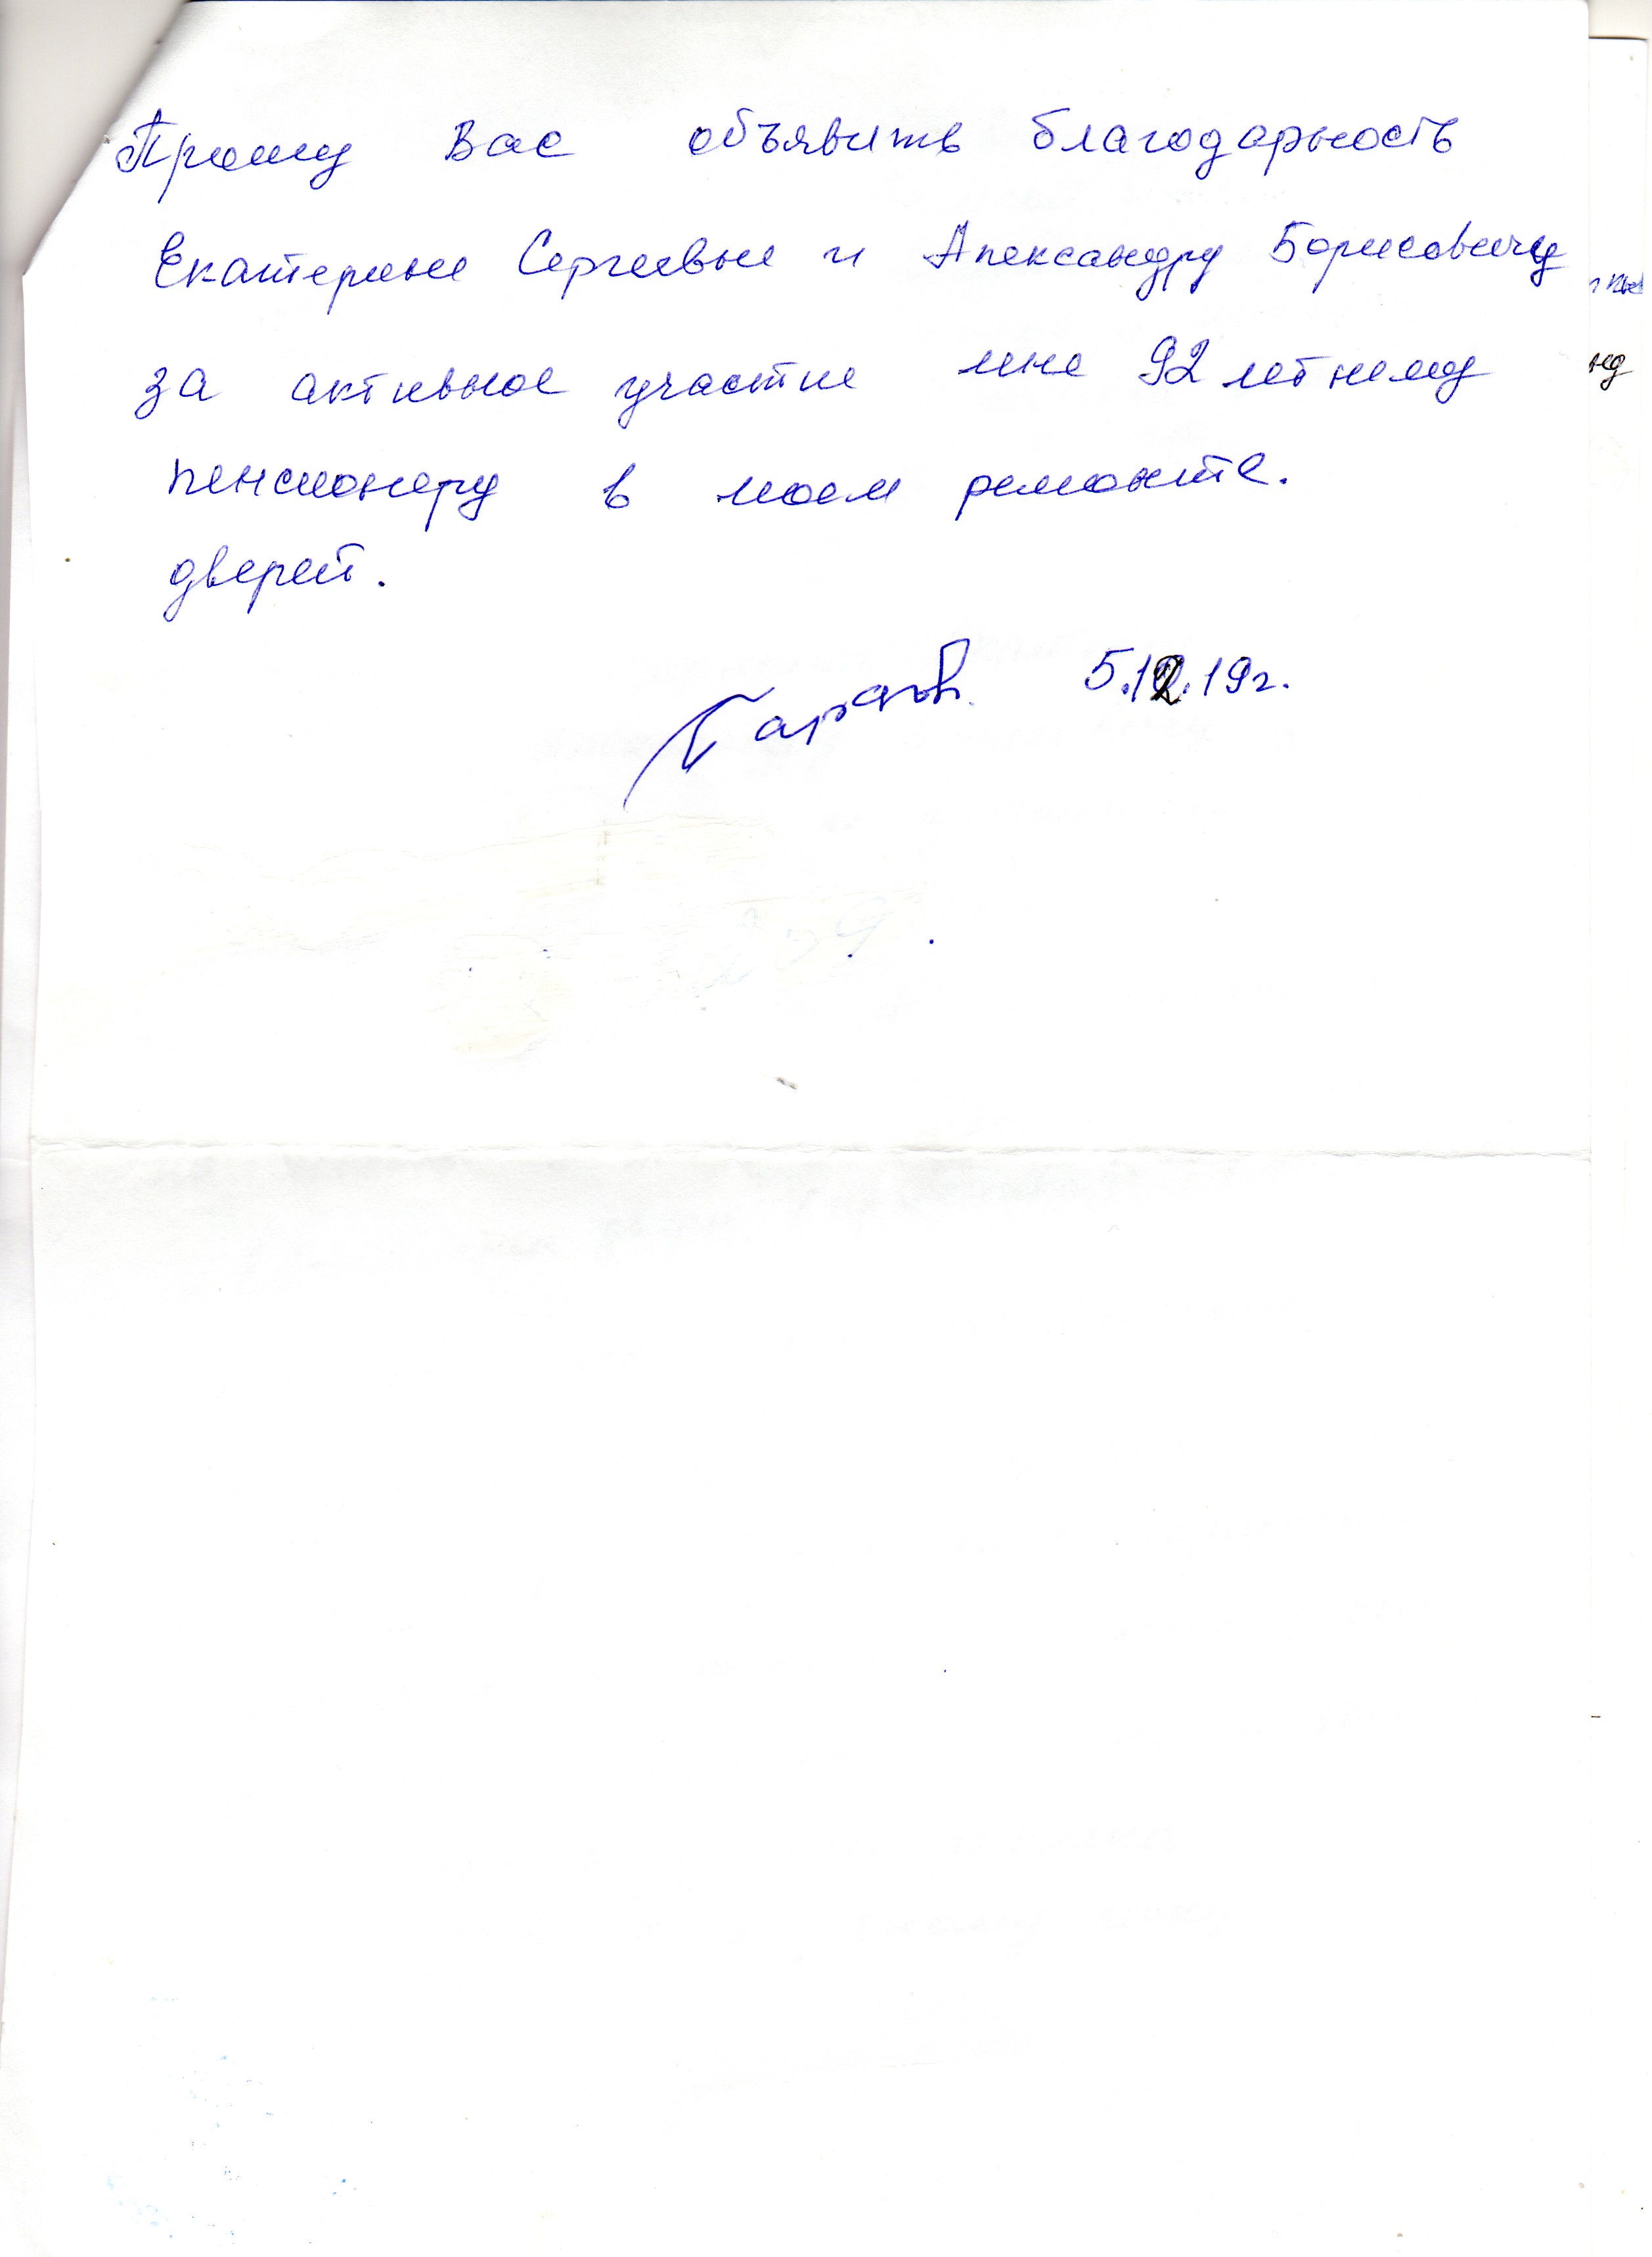 Прошу Вас объявить благодарность
Екатерине Сергеевне и Александру Борисовичу
за активное участие мне 92 летнему
пенсионеру в моем ремонте.
дверей.
5.12.19г.